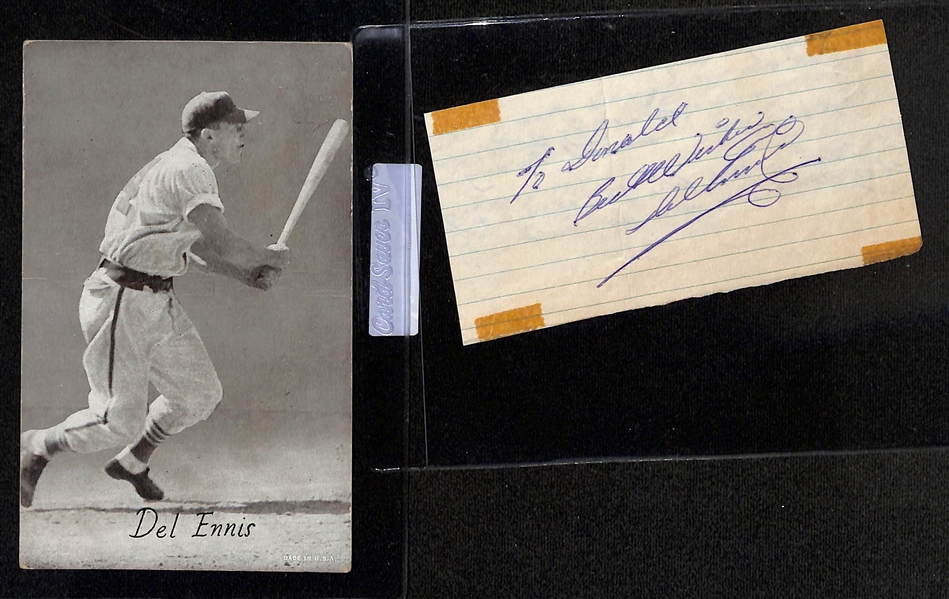 Del Ennis
MADE IN U.S.A.
Card Saver IV
To Donald
Best Wishes
Del Ennis